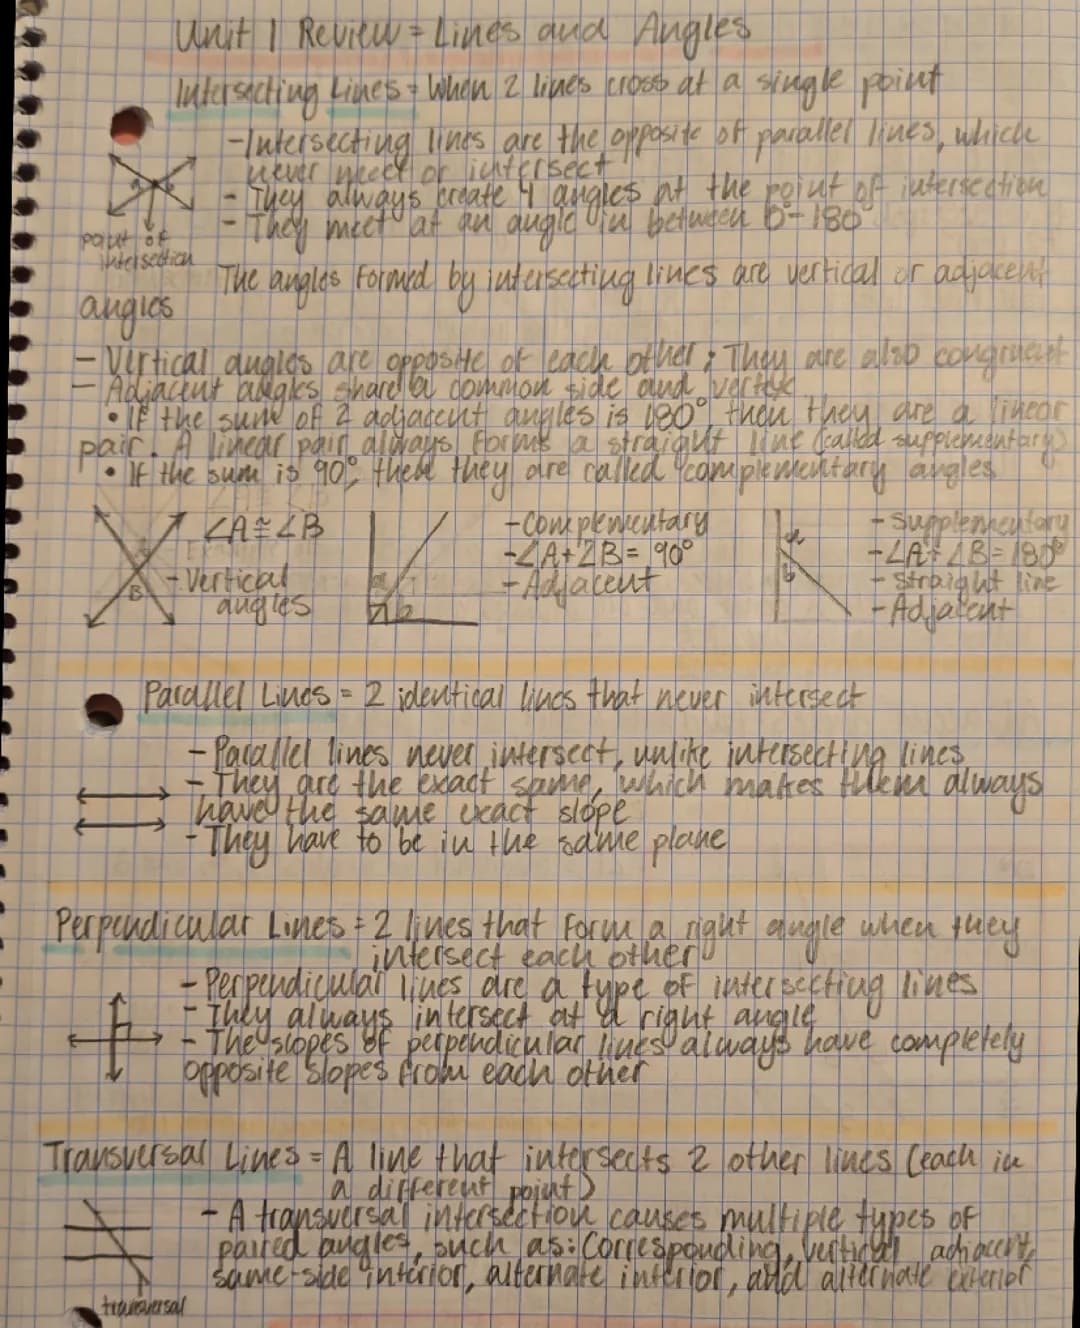 Unit 1 Review = Lines and Angles
Intersecting Lines = When 2 lines cross at a single point
-Intersecting lines are the opposite of parallel lines, which
never meet or intersect
- They always create 4 angles at the point of intersection
- They meet at an angle in between 0°-180°
point of
intersection
The angles formed by intersecting lines are vertical or adjacent
angles
- Vertical angles are opposite of each other; They are also congruent
- Adjacent angles share a common side and vertex
• If the sum of 2 adjacent angles is 180° then they are a linear
pair. A linear pair always forms a straight line (called supplementary)
• If the sum is 90°, then they are called complementary angles
∠A≅∠B
- Vertical
angles
B
-Complementary
-∠A+∠B= 90°
-Adjacent
a
b
- Supplementary
-∠A+∠B=180°
- Straight line
- Adjacent
a
b
Parallel Lines = 2 identical lines that never intersect
- Parallel lines never intersect, unlike intersecting lines
- They are the exact same, which makes them always
have the same exact slope
- They have to be in the same plane
Perpendicular Lines = 2 lines that form a right angle when they
intersect each other
- Perpendicular lines are a type of intersecting lines
- They always intersect at a right angle
- The slopes of perpendicular lines always have completely
opposite slopes from each other
Transversal Lines = A line that intersects 2 other lines (each in
a different point)
- A transversal intersection causes multiple types of
paired angles, such as: Corresponding, vertical, adjacent,
same-side interior, alternate interior, and alternate exterior
transversal